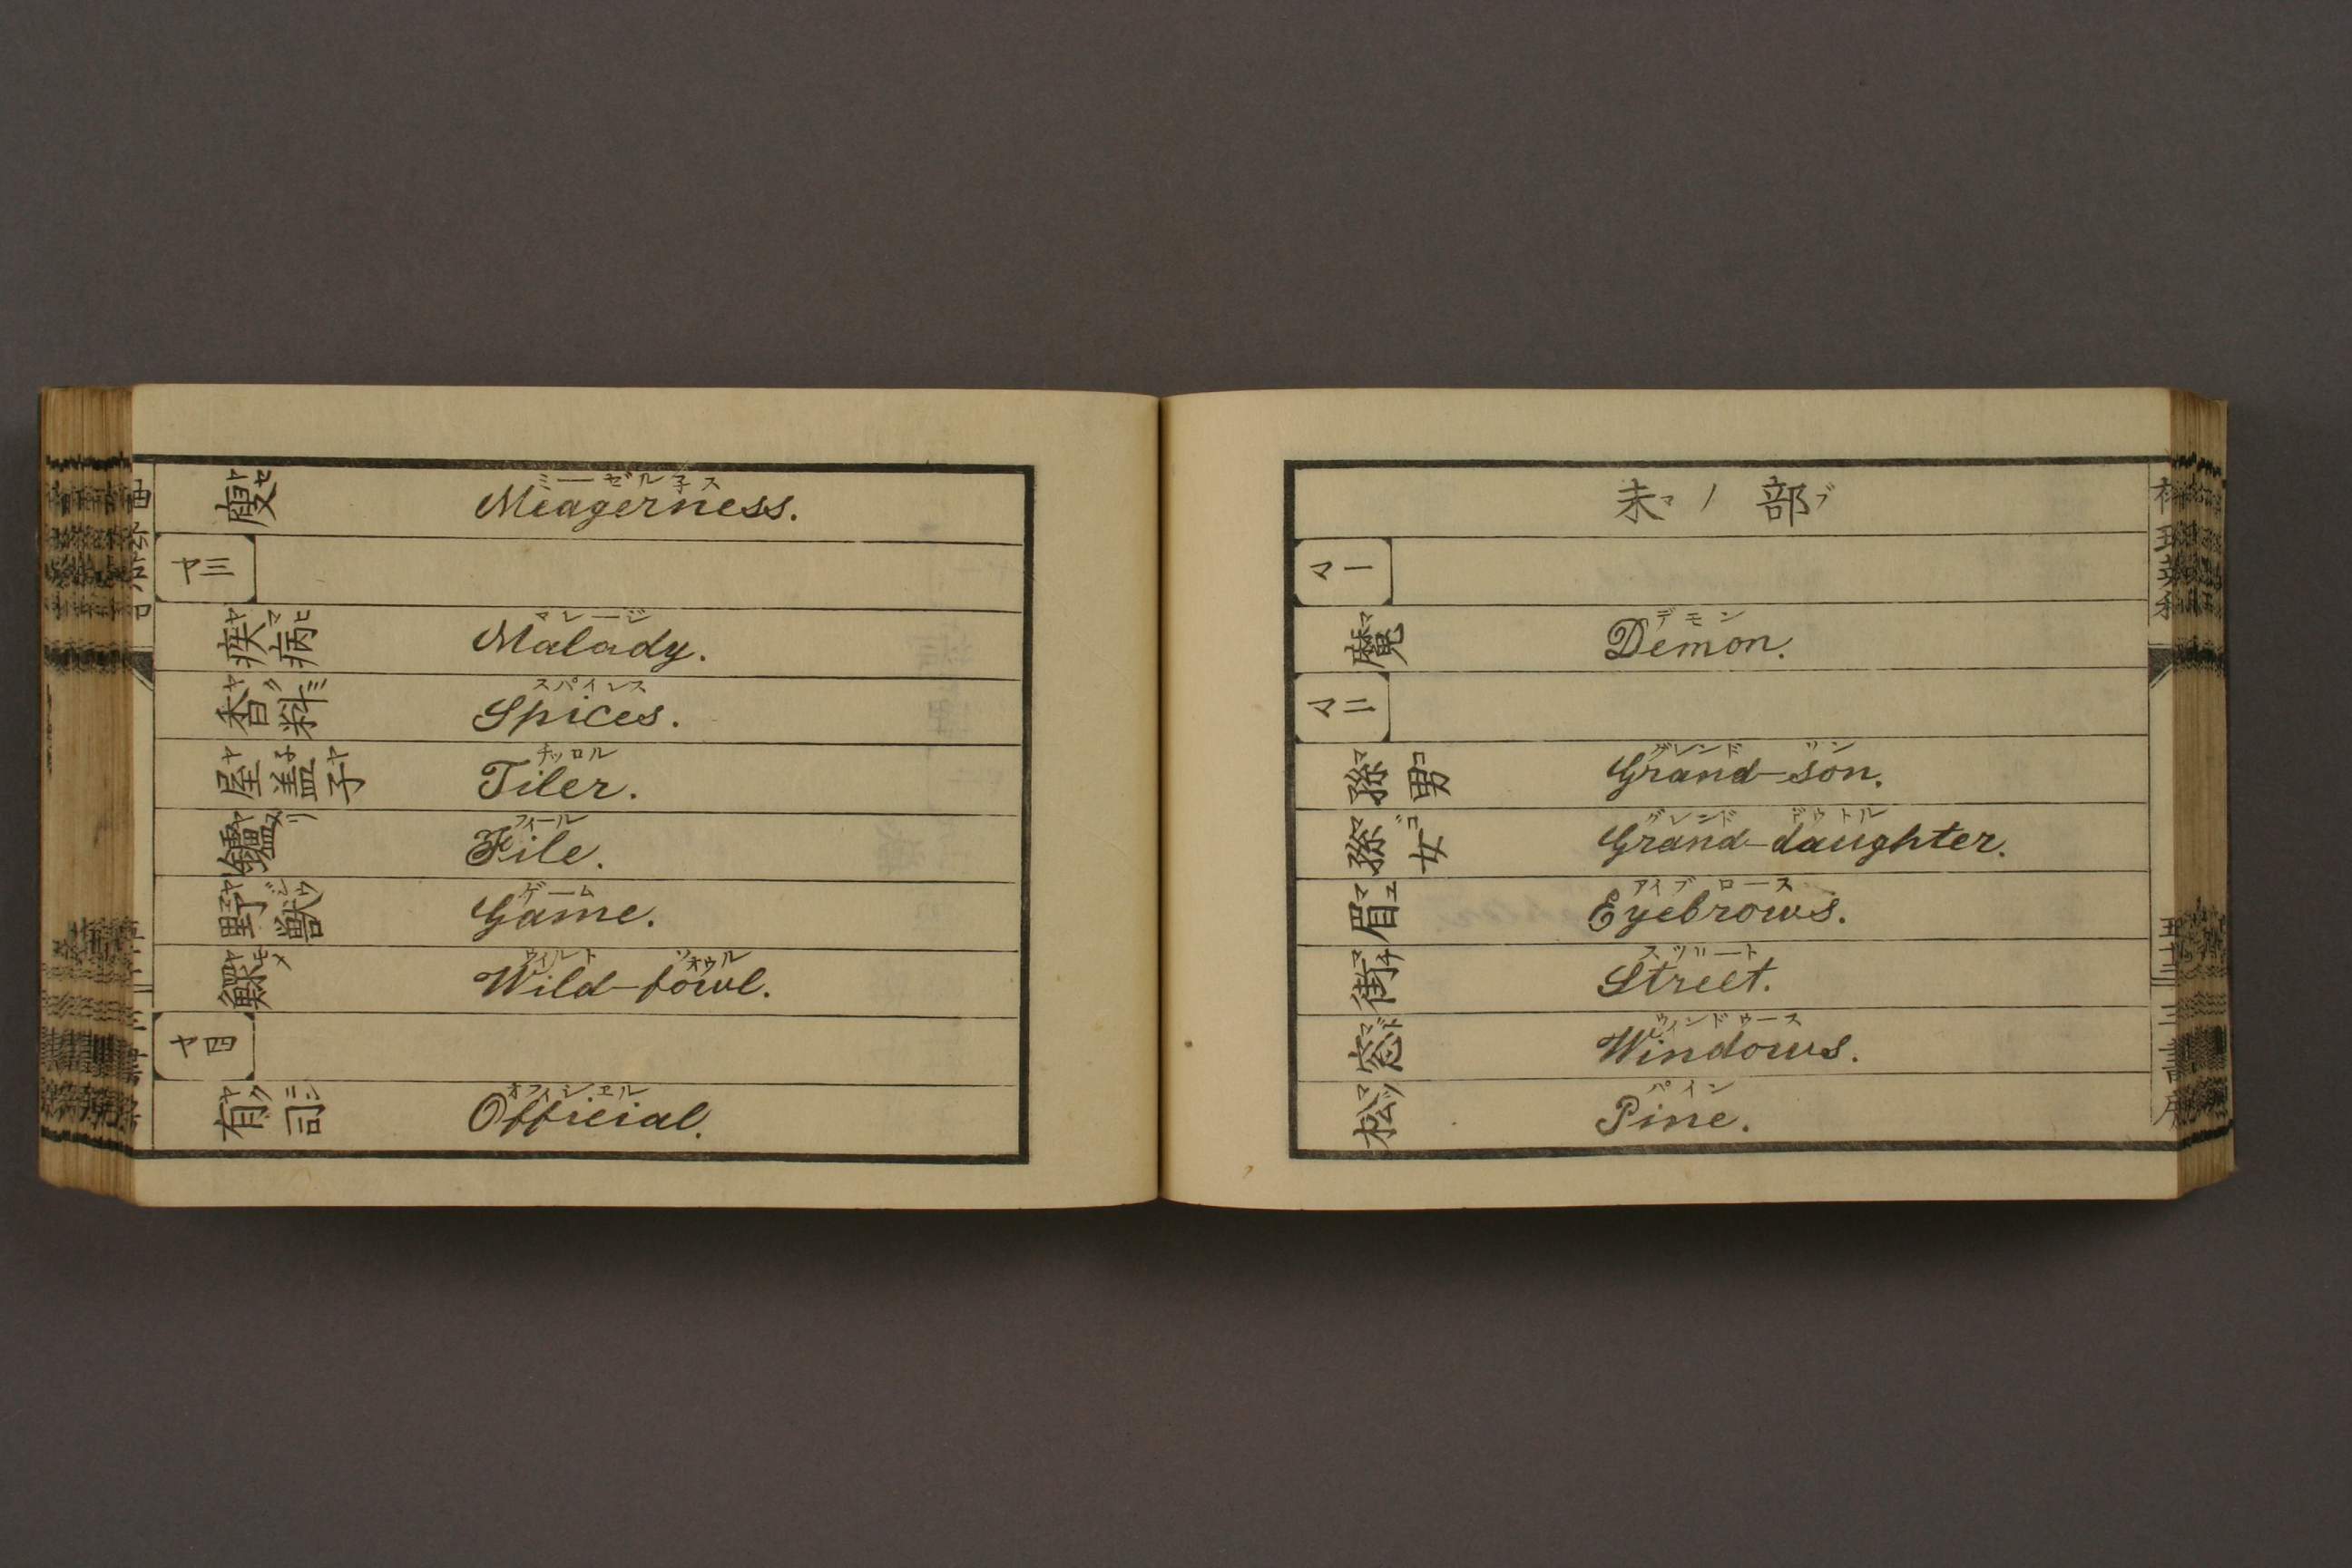 瘦 ヤセ
ミーゼル子ス
Meagerness.
ヤ三
疾病 ヤマヒ
マレージ
Malady.
香料 ヤクミ
スパイレス
Spices.
屋蓋子 ヤ子ヤ
チッロル
Tiler.
鑢 ヤスリ
フィール
File.
野獣 ヤジウ
ゲーム
Game.
鰥 ヤモメ
ウィルト ツォウル
Wild-fowl.
ヤ四
有司 ヤクニン
オフィシエル
Official.
末マノ部ブ
マ一
魔 マ
デモン
Demon.
マ二
孫男 マコ
グレンド ソン
Grand-son.
孫女 マゴ
グレンド ドウトル
Grand-daughter.
眉 マユ
アイブロース
Eyebrows.
街 マチ
スツリート
Street.
窓 マド
ウィンドウース
Windows.
松 マツ
パイン
Pine.